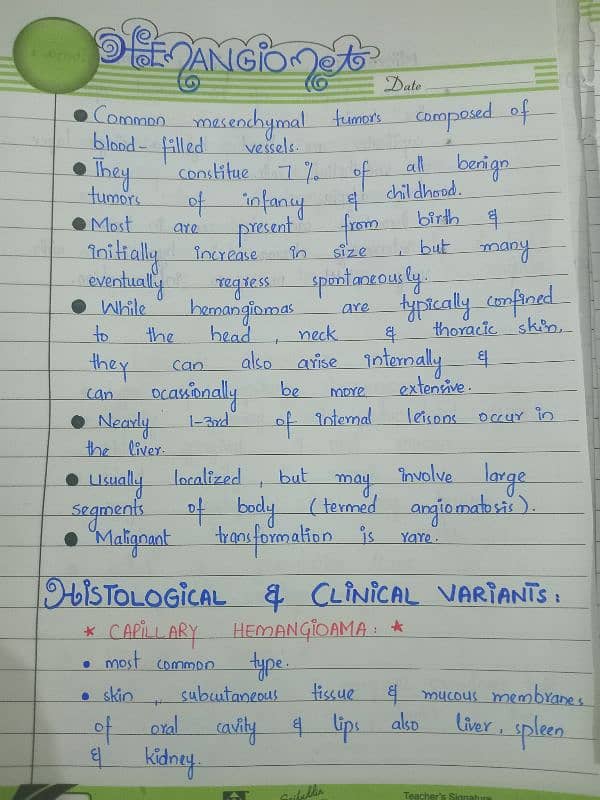 HEMANGIOMA
Date
• Common mesenchymal tumors composed of
blood-filled vessels.
• They constitue 7% of all benign
tumors of infancy & childhood.
• Most are present from birth &
initially increase in size, but many
eventually regress spontaneously.
• While hemangiomas are typically confined
to the head, neck & thoracic skin,
they can also arise internally &
can ocassionally be more extensive.
• Nearly 1-3rd of internal leisons occur in
the liver.
• Usually localized, but may involve large
segments of body (termed angiomatosis).
• Malignant transformation is rare.
HISTOLOGICAL & CLINICAL VARIANTS:
* CAPILLARY HEMANGIOAMA: *
• most common type.
• skin, subcutaneous tissue & mucous membranes
of oral cavity & lips also liver, spleen
& kidney.
Teacher's Signature